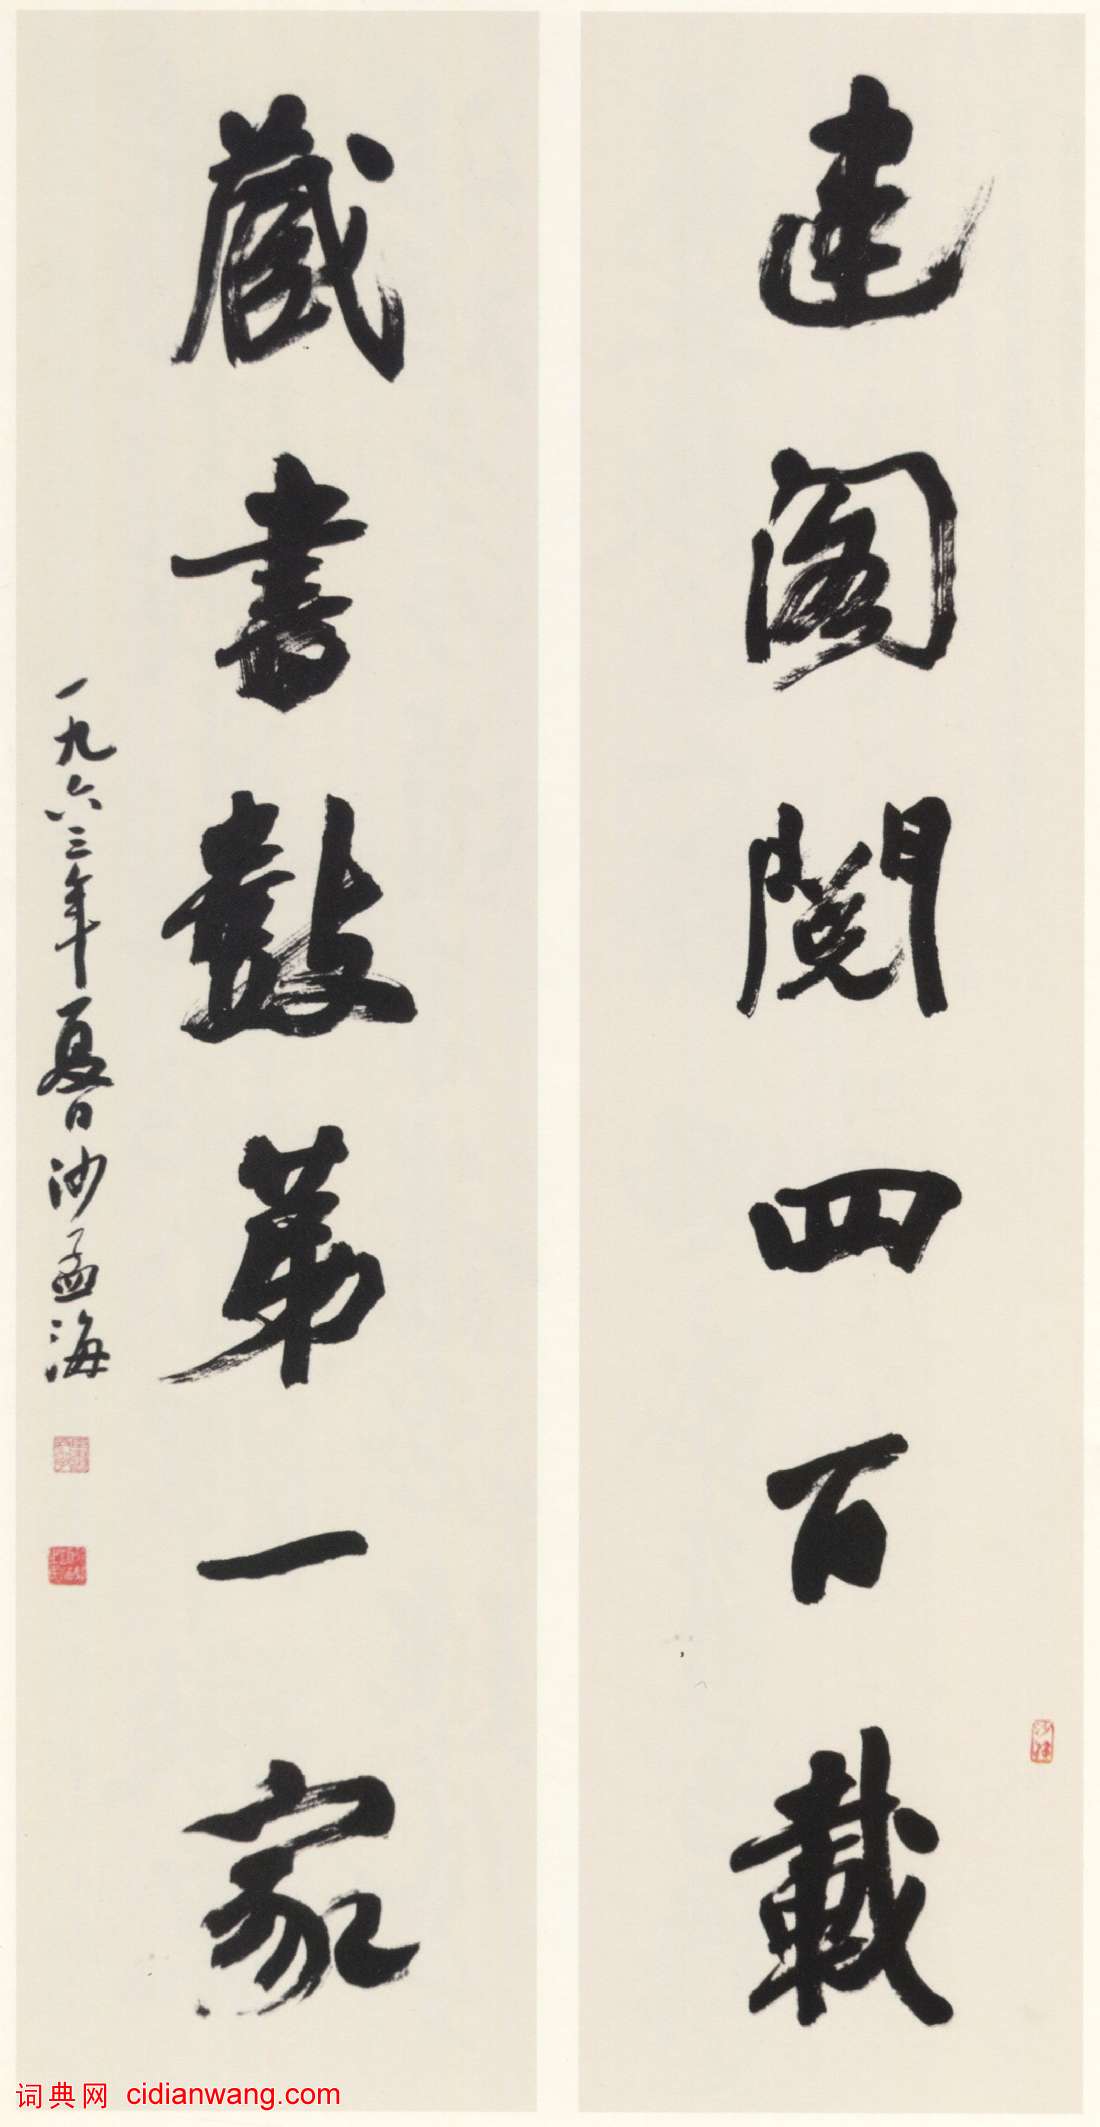 建阁閱四百載
藏書數第一家
一九六三年夏日沙孟海
词典网 cidianwang.com